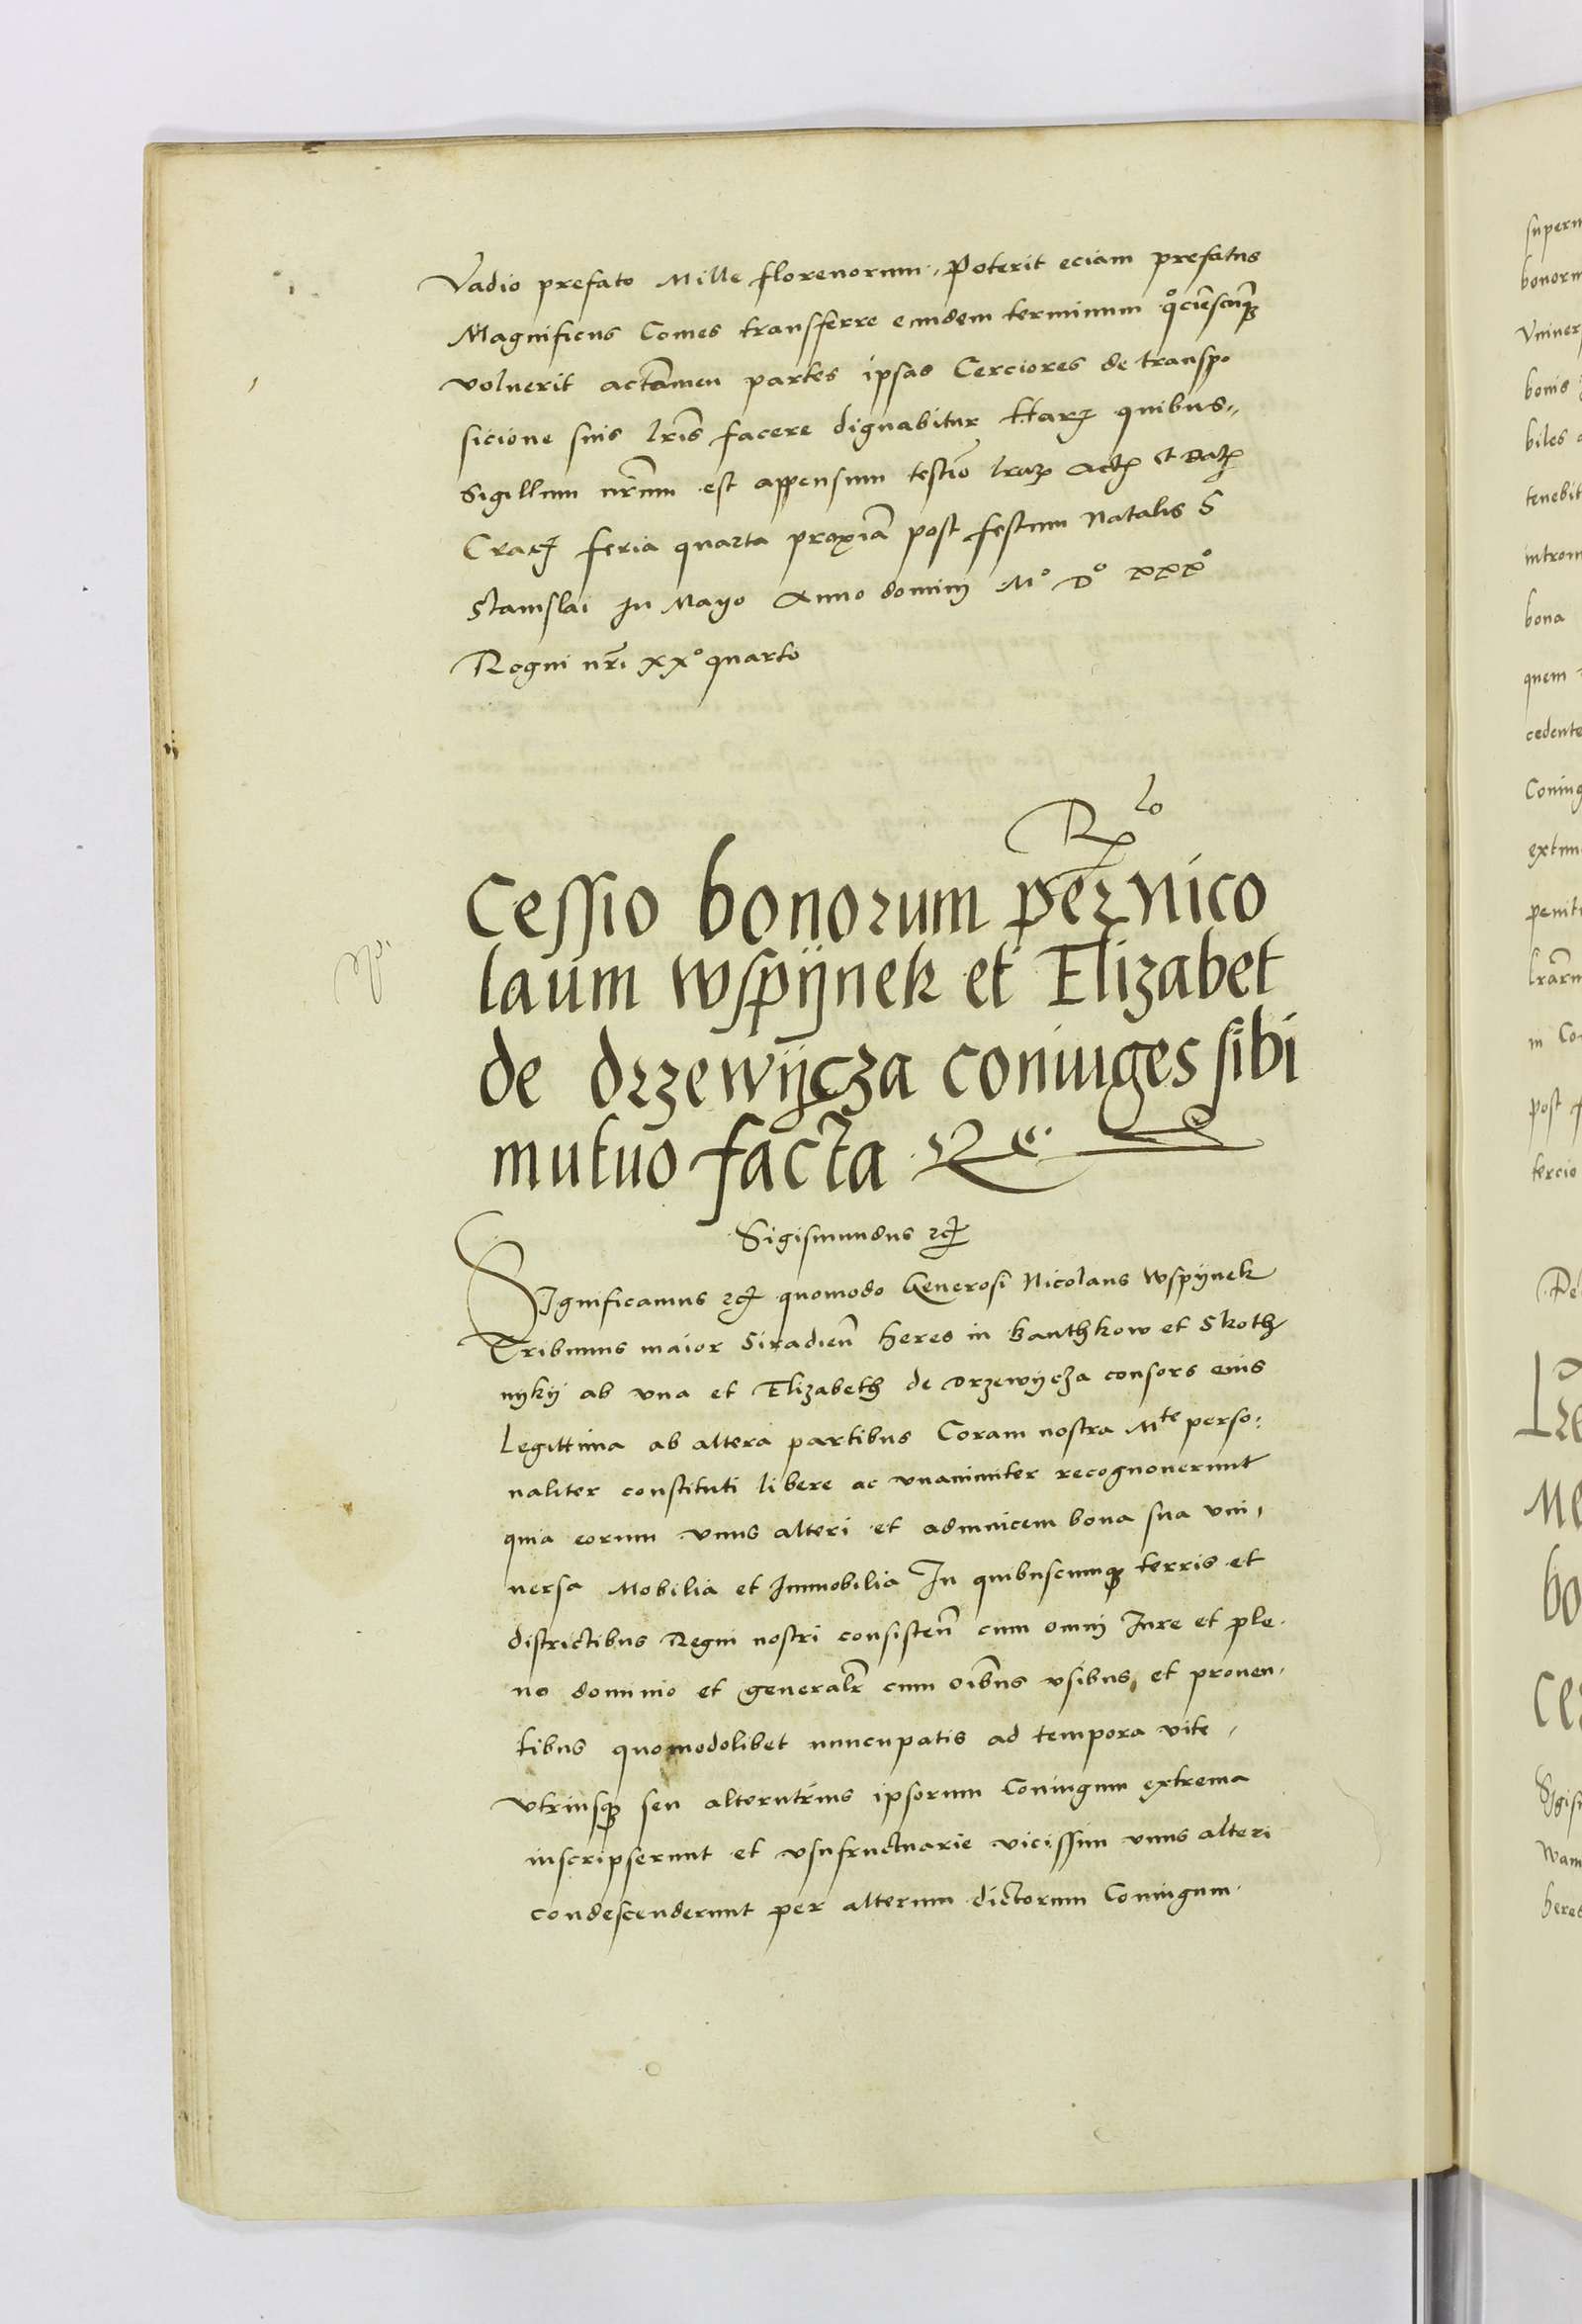 Vadio prefato Mille florenorum. Poterit eciam prefatus
Magnificus Comes transferre eundem terminum qociescunq
voluerit actamen partes ipsas Cerciores de transpo
sicione suis lris facere dignabitur Harz quibus
Sigillum nrum est appensum testio lrarz Actz et Datz
Crac feria quarta proxia post festum Natalis S
Stanislai In Mayo Anno domini Mo Do xxxo
Regni nri xxo quarto
Rlo
Cessio bonorum per Nico
laum wspijnek et Elizabet
de drzewijcza coniuges sibi
mutuo facta Rc
Sigismundus rc
Significamus rc quomodo Generosi Nicolaus Wspijnek
Tribunus maior Siradien heres in Banthkow et Skoth
nyky ab vna et Elizabeth de Drzewijcza consors eius
Legittima ab altera partibus Coram nostra Mte perso:
naliter constituti libere ac vnanimiter recognouerunt
quia eorum vnus alteri et adinuicem bona sua vni,
uersa Mobilia et Immobilia In quibuscunq terris et
districtibus Regni nostri consisten cum omni Iure et ple.
no dominio et generalr cum oibus vsibus et prouen.
tibus quomodolibet nuncupatis ad tempora vite,
vtriusq seu alterutrius ipsorum Coniugum extrema
inscripserunt et vsufructuarie vicissim vnus alteri
condescenderunt per alterum dictorum Coniugum.